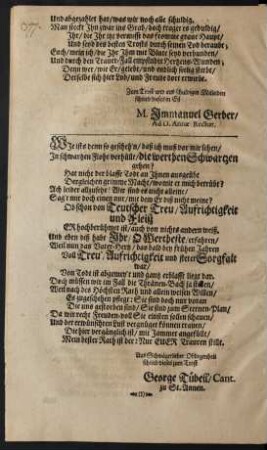 Und abgezahlet hat/was wir noch alle schuldig.
Man steckt Ihn zwar ins Grab/doch traget es geduldig/
Ihr/ die Ihr itz vermisst das fromme graue Haupt/
Und seyd des besten Trosts durch seinen Tod beraubt;
Euch/mein ich/die Ihr Ihm mit Blute seyd verbunden/
Und durch den Trauer-Fall empfindet Hertzens-Wunden;
Denn wer/wie Er/gelebt/und endlich seelig stirbt/
Derselbe sich hier Lob/und Freude dort erwirbt.
Zum Trost und aus schuldigen Mitleiden
schrieb dieses in Eil
M. Immanuel Gerber/
Ad D. Annæ Rector.
WIe ists denn so gescheh'n/ daß ich muß vor mir sehen/
In schwartzen Flohr verhüllt/ die werthen Schwartzen
gehen?
Hat nicht der blasse Todt an Ihnen ausgeübt
Dergleichen grimme Macht/womit er mich betrübt?
Ach leider allzusehr! Wir sind es nicht alleine/
Sag't mir doch einen nur/mit dem Er doch nicht meine?
Ob schon von Teutscher Treu/Aufrichtigkeit
und Fleiß
ER hochberühmt ist/auch von nichts anders weiß,
Und eben diß habt Ihr/ O Wertheste/erfahren/
Weil nun das Vater-Hertz/das bald bey frühen Jahren
Voll Treu/Aufrichtigkeit und steter Sorgfalt
war/
Von Tode ist abgemey't und gantz erblasst liegt dar.
Doch müssen wir im Fall die Thränen-Bach ja stillen/
Weil nach des Höchsten Rath und allein weisen Willen/
Es zugeschehen pflegt: Sie sind doch nur voran
Die uns gestorben sind/ Sie sind zum Sternen-Plan/
Da wir recht Freuden-voll Sie einsten sollen schauen/
Und der erwünschten Lust vergnüget können trauen/
Die hier vergänglich ist/ mit Jammer angefüllt/
Mein bester Rath ist der: Nur EUER Trauren stillt.
Aus Schwägerlicher Obliegenheit
schrieb dieses zum Trost
George Tübell/ Cant.
zu St. Annen.